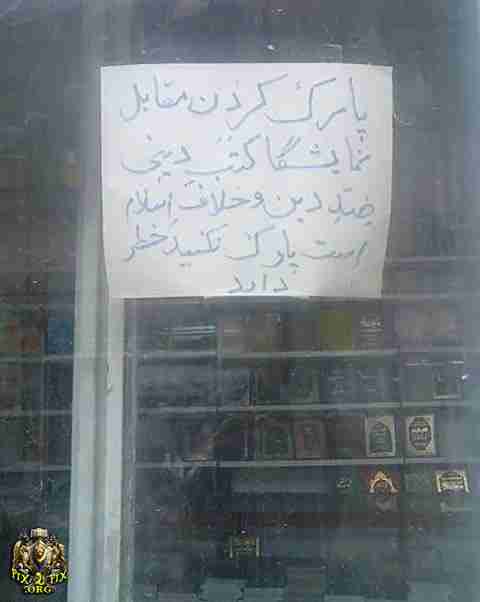 پارک کردن مقابل
نمایشگا کتب دینی
ضدِ دین و خلاف اسلام
است پارک نکنید خطر
دارد
PIX 2 PIX
.ORG